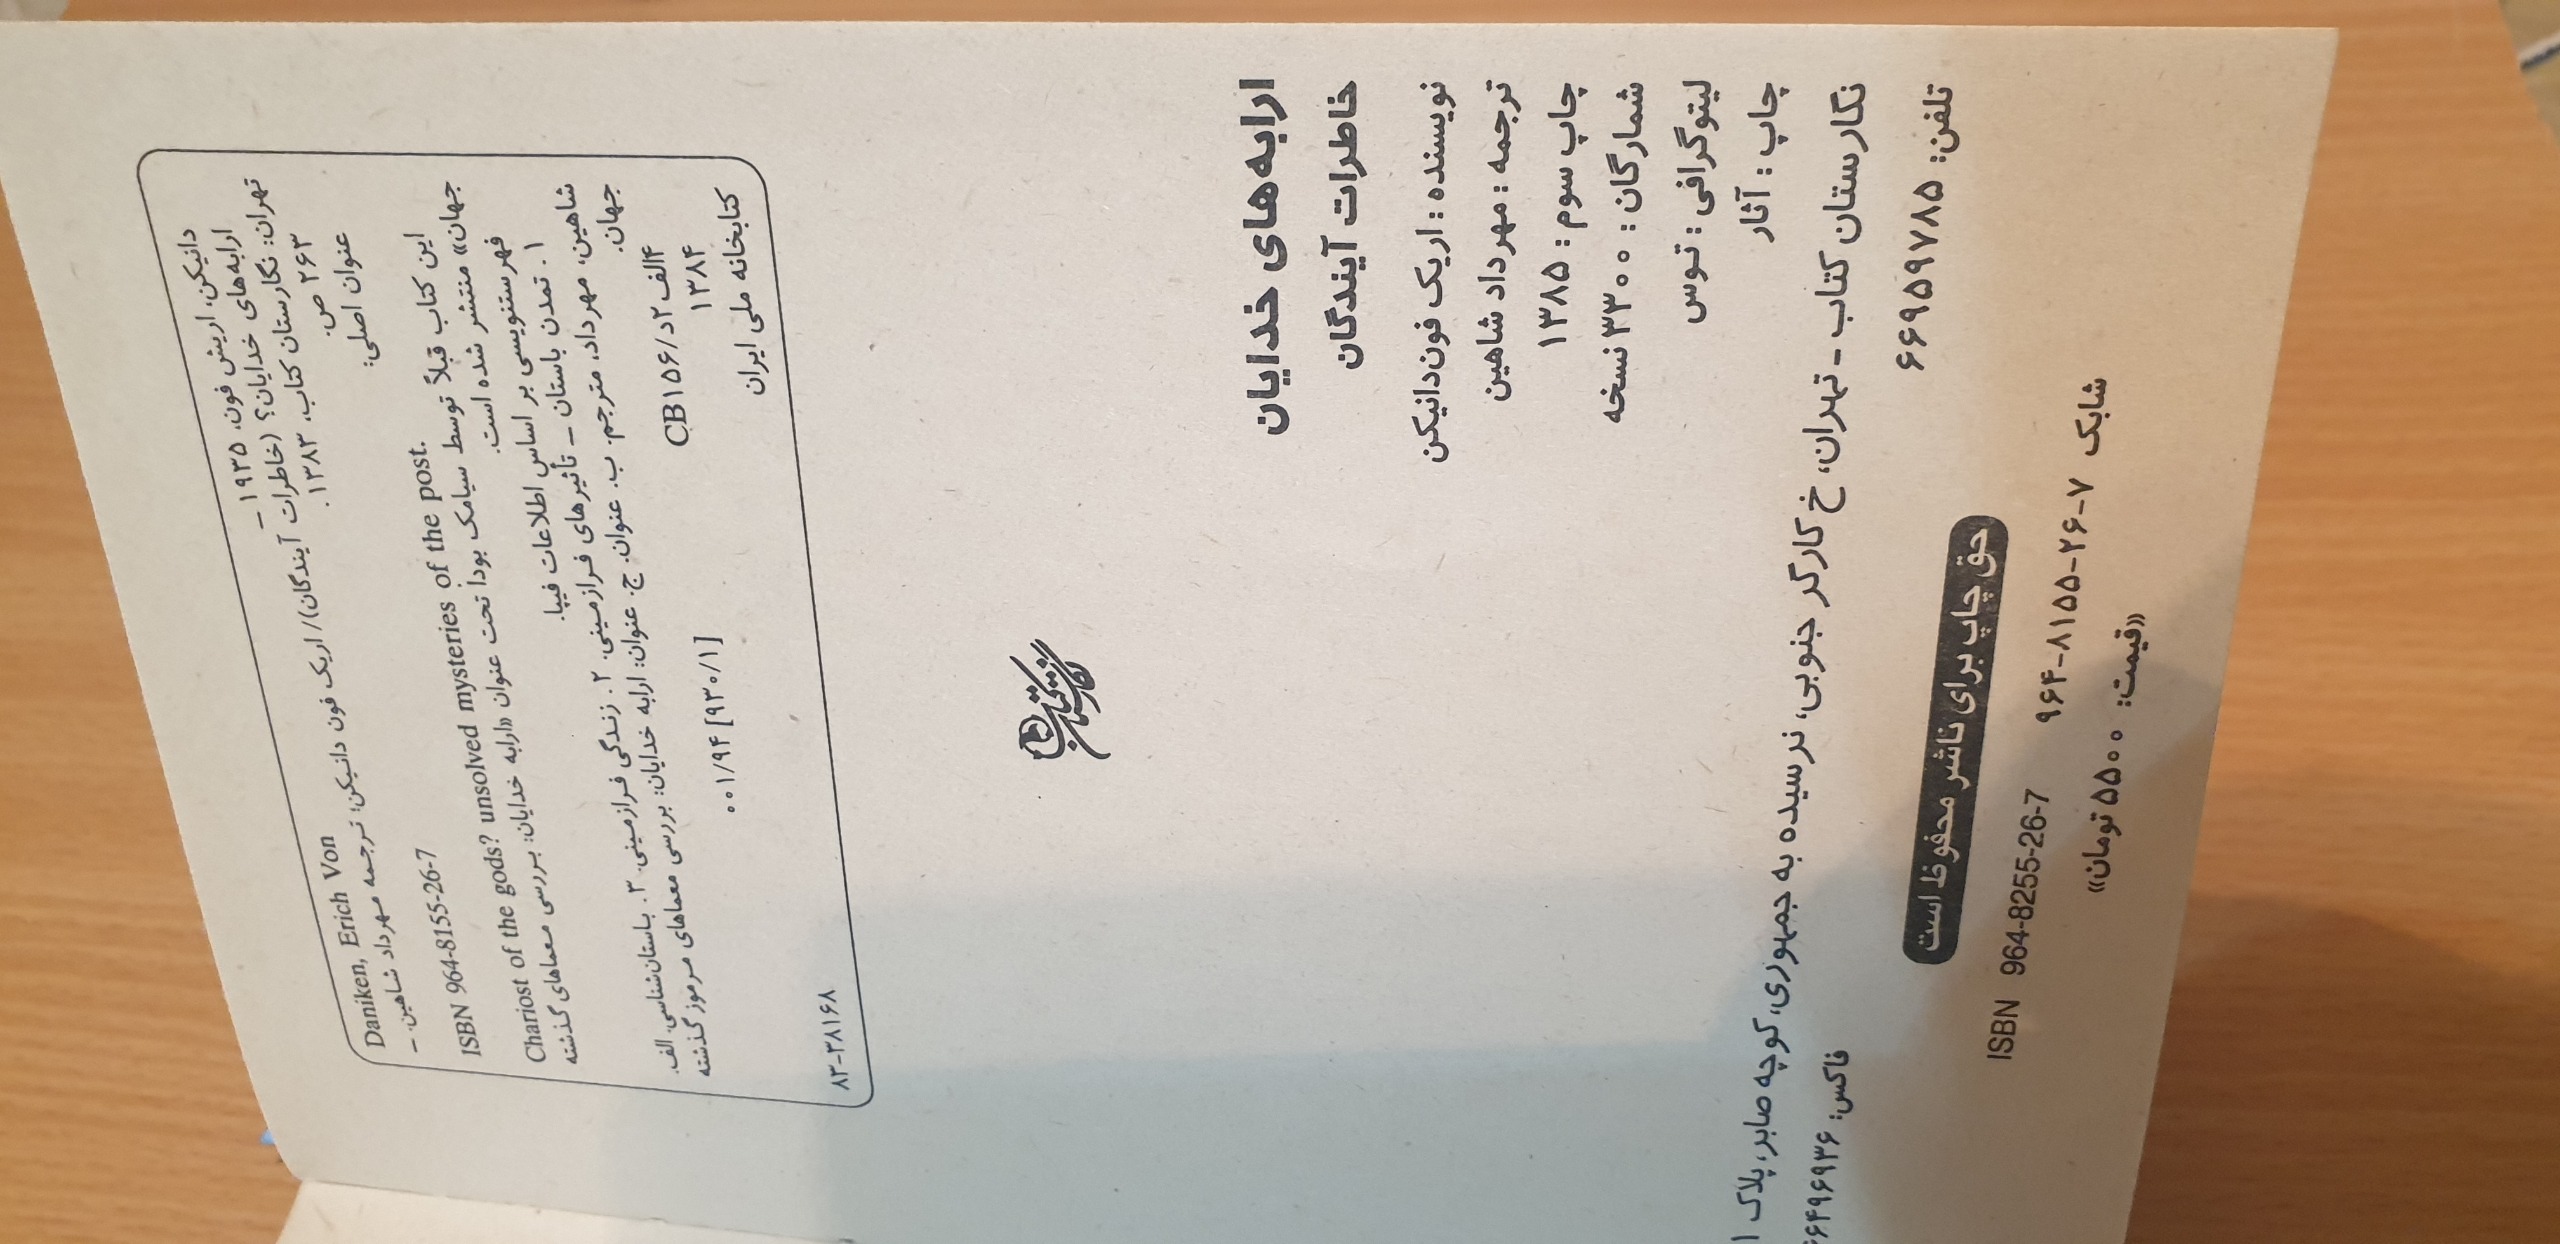 دانیکن، اریش فون، ۱۹۳۵ –
Daniken, Erich Von
ارابه‌های خدایان؟ (خاطرات آیندگان)/ اریک فون دانیکن: ترجمه مهرداد شاهین. –
تهران: نگارستان کتاب، ۱۳۸۳.
۲۶۳ ص.
ISBN 964-8155-26-7
عنوان اصلی:
Chariost of the gods? unsolved mysteries of the post.
این کتاب قبلاً توسط سیامک بودا تحت عنوان «ارابه خدایان: بررسی معماهای گذشته
جهان» منتشر شده است.
فهرستنویسی بر اساس اطلاعات فیپا.
۱. تمدن باستان – تأثیرهای فرازمینی. ۲. زندگی فرازمینی. ۳. باستان‌شناسی. الف.
شاهین، مهرداد، مترجم. ب. عنوان. ج. عنوان: ارابه خدایان: بررسی معماهای مرموز گذشته
جهان.
۴الف۲د/CB۱۵۶ ۰۰۱/۹۴ [۹۳۰/۱]
۱۳۸۴
کتابخانه ملی ایران ۸۳-۳۸۱۶۸
نگارستان کتاب
ارابه‌های خدایان
خاطرات آیندگان
نویسنده : اریک فون‌دانیکن
ترجمه : مهرداد شاهین
چاپ سوم : ۱۳۸۵
شمارگان : ۳۳۰۰ نسخه
لیتوگرافی : توس
چاپ : آثار
نگارستان کتاب - تهران، خ کارگر جنوبی، نرسیده به جمهوری، کوچه صابر، پلاک ۱
تلفن: ۶۶۹۵۹۷۸۵ فاکس: ۶۶۴۹۶۹۳۶
حق چاپ برای ناشر محفوظ است
شابک ۷-۲۶-۸۱۵۵-۹۶۴ ISBN 964-8255-26-7
«قیمت: ۵۵۰۰ تومان»